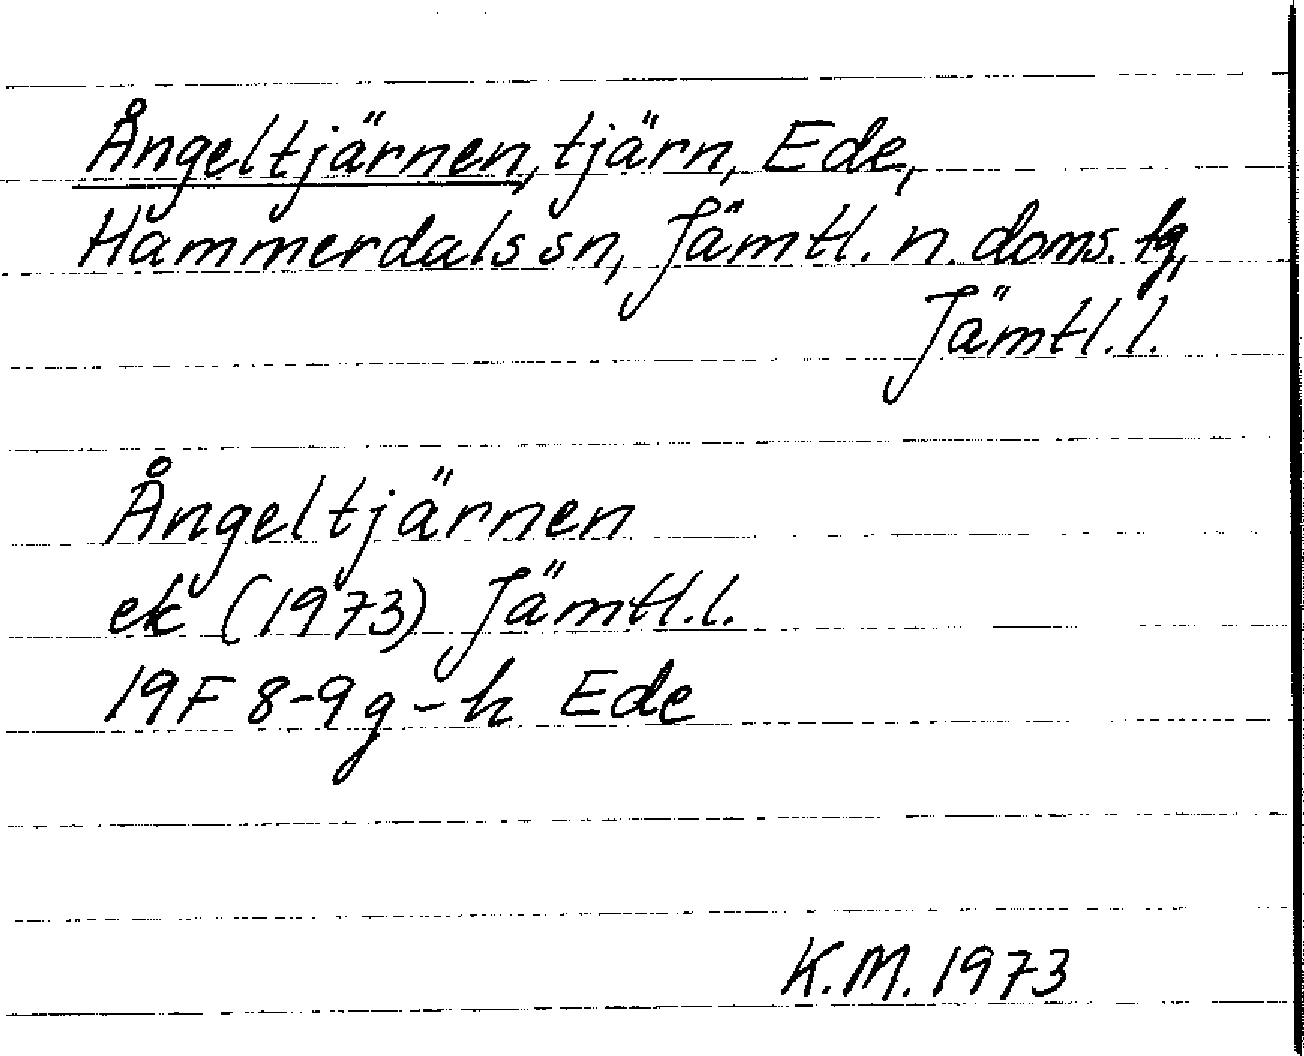 Ångeltjärnen, tjärn, Ede,
Hammerdals sn, Jämtl. n. doms. tg,
Jämtl. l.
Ångeltjärnen
ek (1973) Jämtl. l.
19F 8-9g-h Ede
K.M. 1973